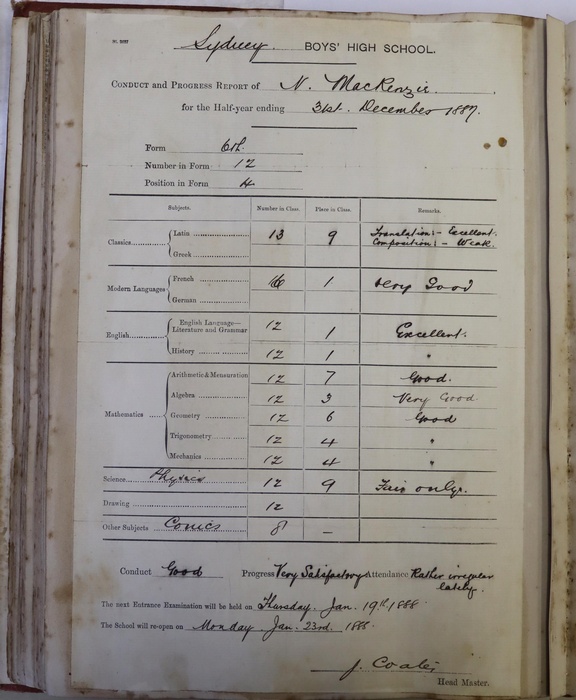 Sydney BOYS' HIGH SCHOOL.
CONDUCT AND PROGRESS REPORT OF N. MacKenzie
for the Half-year ending 31st. December 1887.
Form 6th.
Number in Form 12
Position in Form 4
Subjects. Number in Class. Place in Class. Remarks.
Classics Latin 13 9 Translation:- Excellent.
Composition:- Weak.
Greek
Modern Languages French 16 1 Very Good
German
English English Language—
Literature and Grammar 12 1 Excellent.
History 12 1 "
Mathematics Arithmetic & Mensuration 12 7 Good.
Algebra 12 3 Very Good
Geometry 12 6 Good
Trigonometry 12 4 "
Mechanics 12 4 "
Science Physics 12 9 Fair only.
Drawing 12
Other Subjects Conics 8 —
Conduct Good Progress Very Satisfactory Attendance Rather irregular
lately.
The next Entrance Examination will be held on Thursday. Jan. 19th 1888
The School will re-open on Monday Jan. 23rd. 1888.
J. Coates
Head Master.